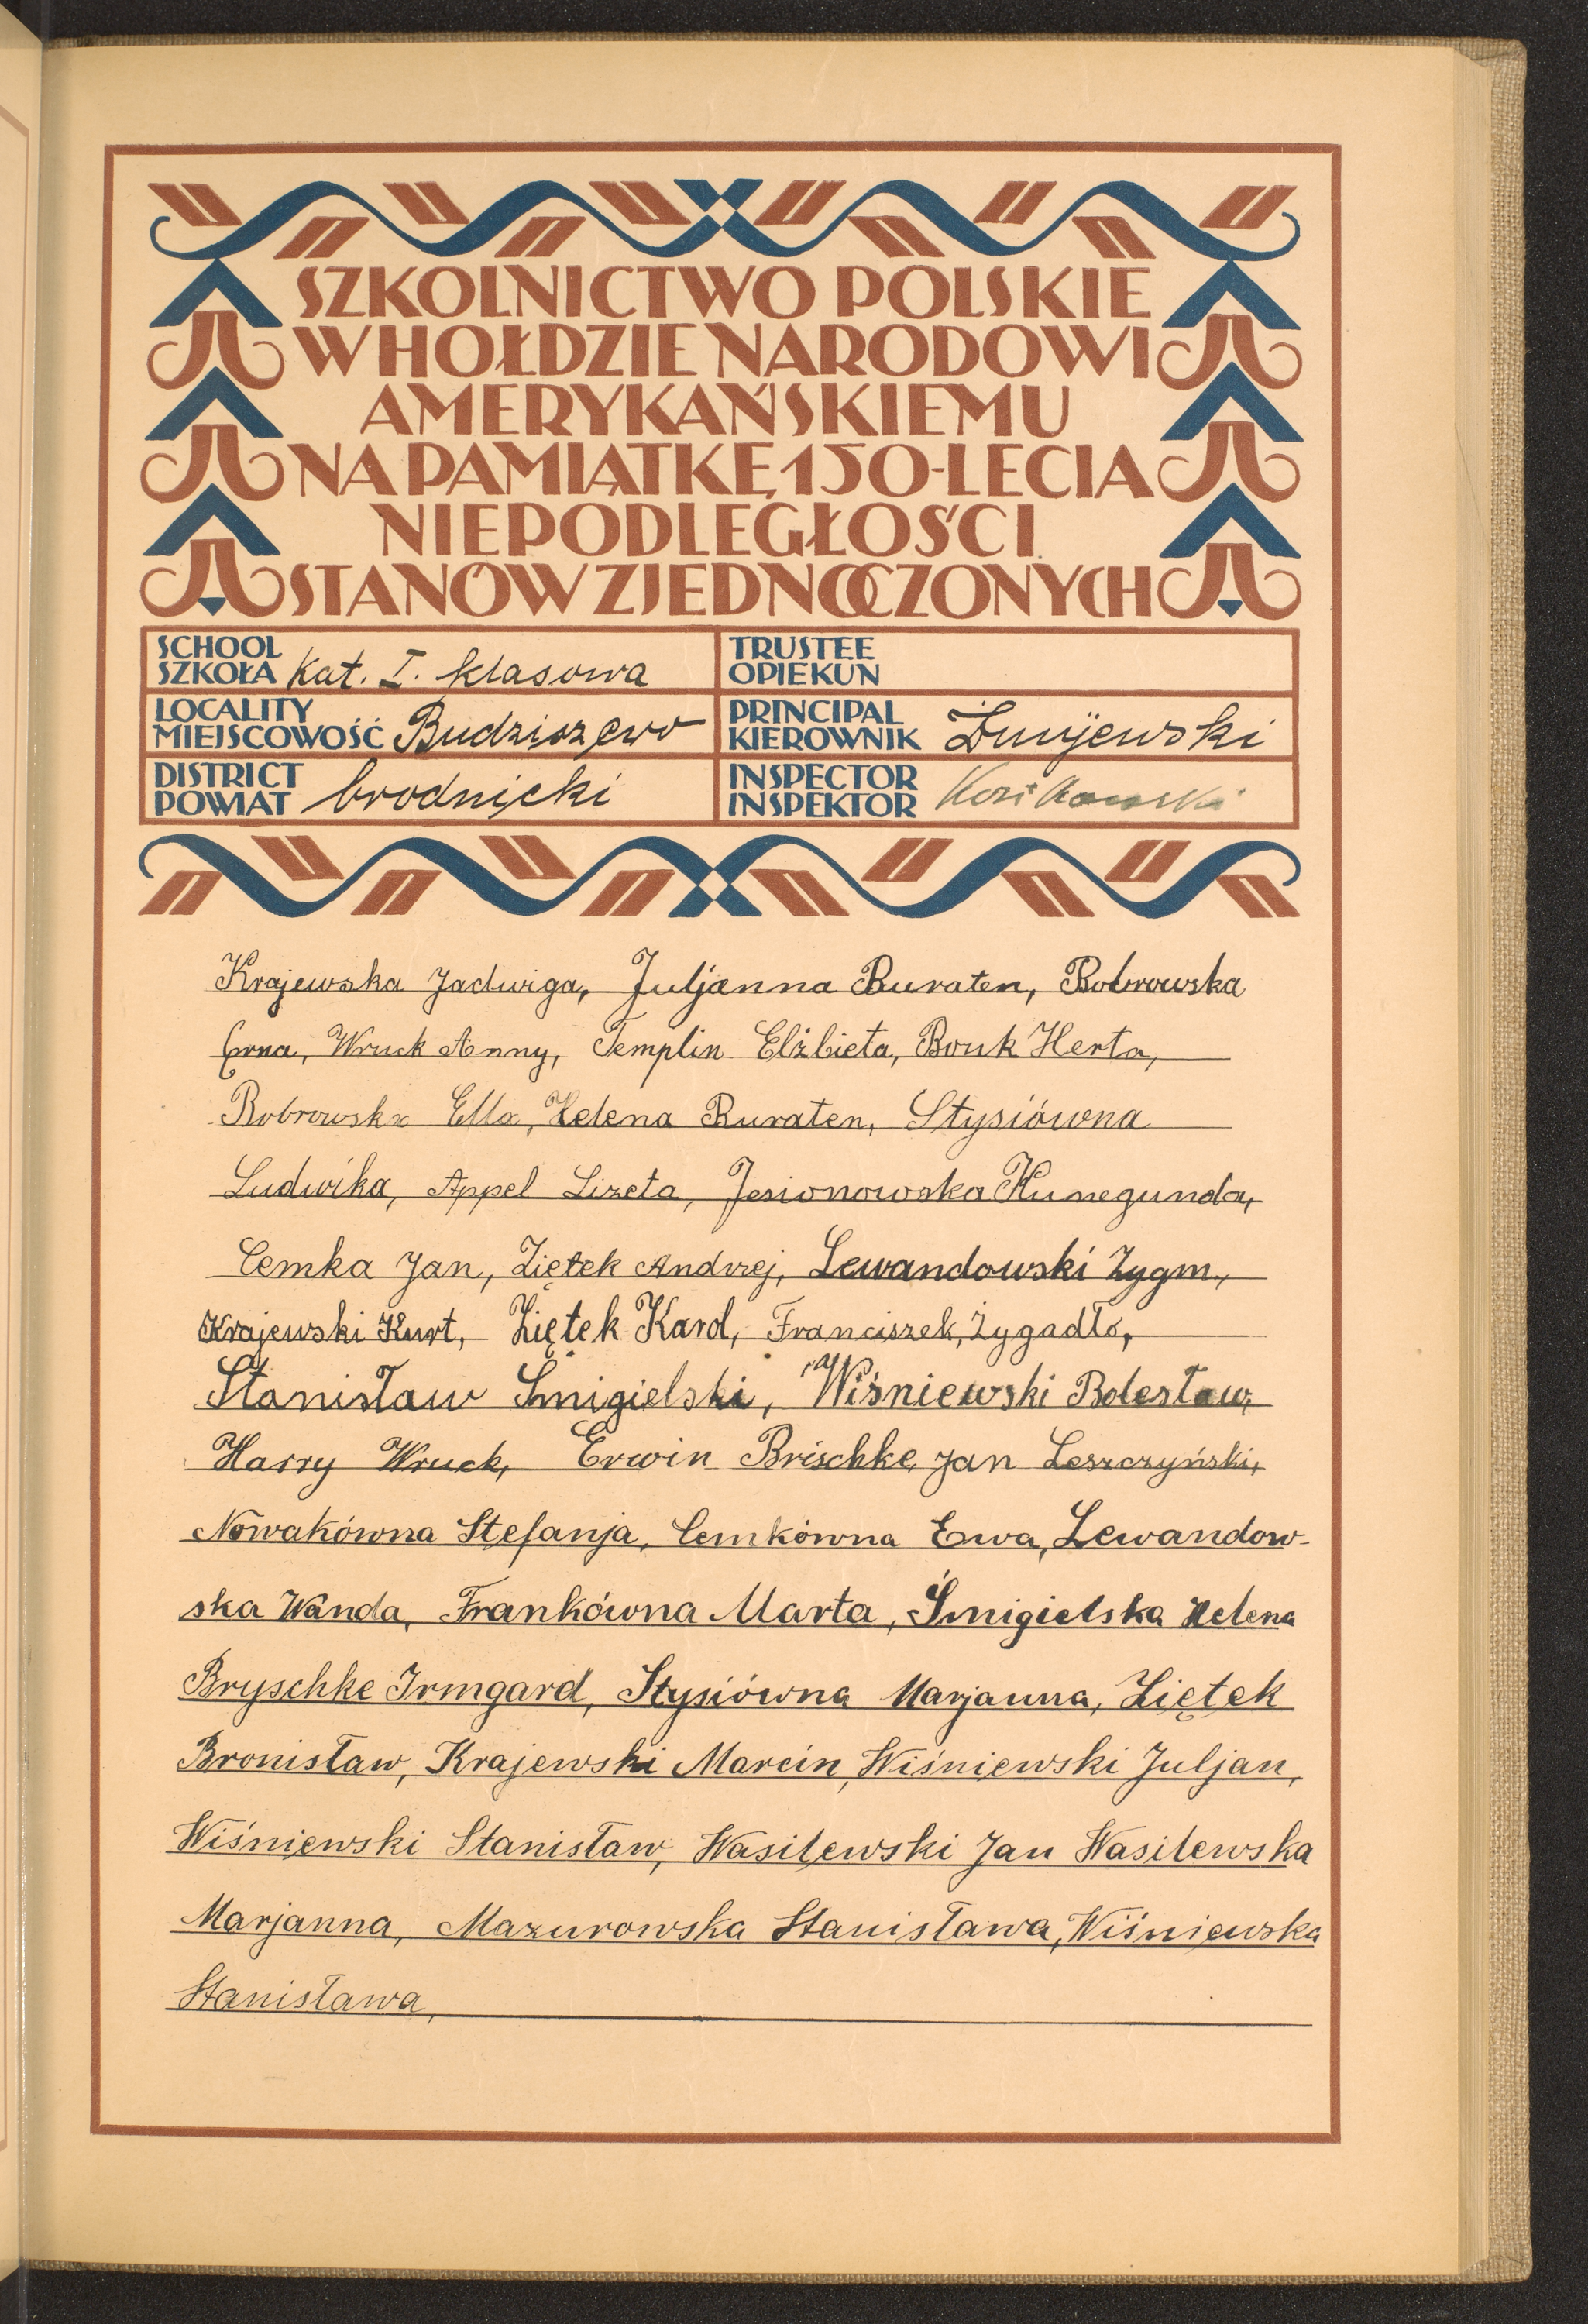 SZKOLNICTWO POLSKIE
W HOŁDZIE NARODOWI
AMERYKAŃSKIEMU
NA PAMIĄTKĘ 150-LECIA
NIEPODLEGŁOŚCI
STANÓW ZJEDNOCZONYCH
SCHOOL
SZKOŁA Kat. I. klasowa
TRUSTEE
OPIEKUN
LOCALITY
MIEJSCOWOŚĆ Budziszewo
PRINCIPAL
KIEROWNIK Żmijewski
DISTRICT
POWIAT brodnicki
INSPECTOR
INSPEKTOR
Krajewska Jadwiga, Juljanna Buraten, Bobrowska
Erna, Wruck Anny, Templin Elżbieta, Bonk Herta,
Bobrowska Ella, Helena Buraten, Stysiówna
Ludwika, Appel Lizeta, Jesionowska Kunegunda,
Cemka Jan, Ziętek Andrzej, Lewandowski Zygm.,
Krajewski Kurt, Ziętek Karol, Franciszek, Żygadło,
Stanisław Smigielski, Wiśniewski Bolesław,
Harry Wruck, Erwin Brischke, Jan Leszczyński,
Nowakówna Stefanja, Cemkówna Ewa, Lewandow-
ska Wanda, Frankówna Marta, Śmigielska Helena
Bryschke Irmgard, Stysiówna Marjanna, Ziętek
Bronisław, Krajewski Marcin, Wiśniewski Juljan,
Wiśniewski Stanisław, Wasilewski Jan Wasilewska
Marjanna, Mazurowska Stanisława, Wiśniewska
Stanisława,